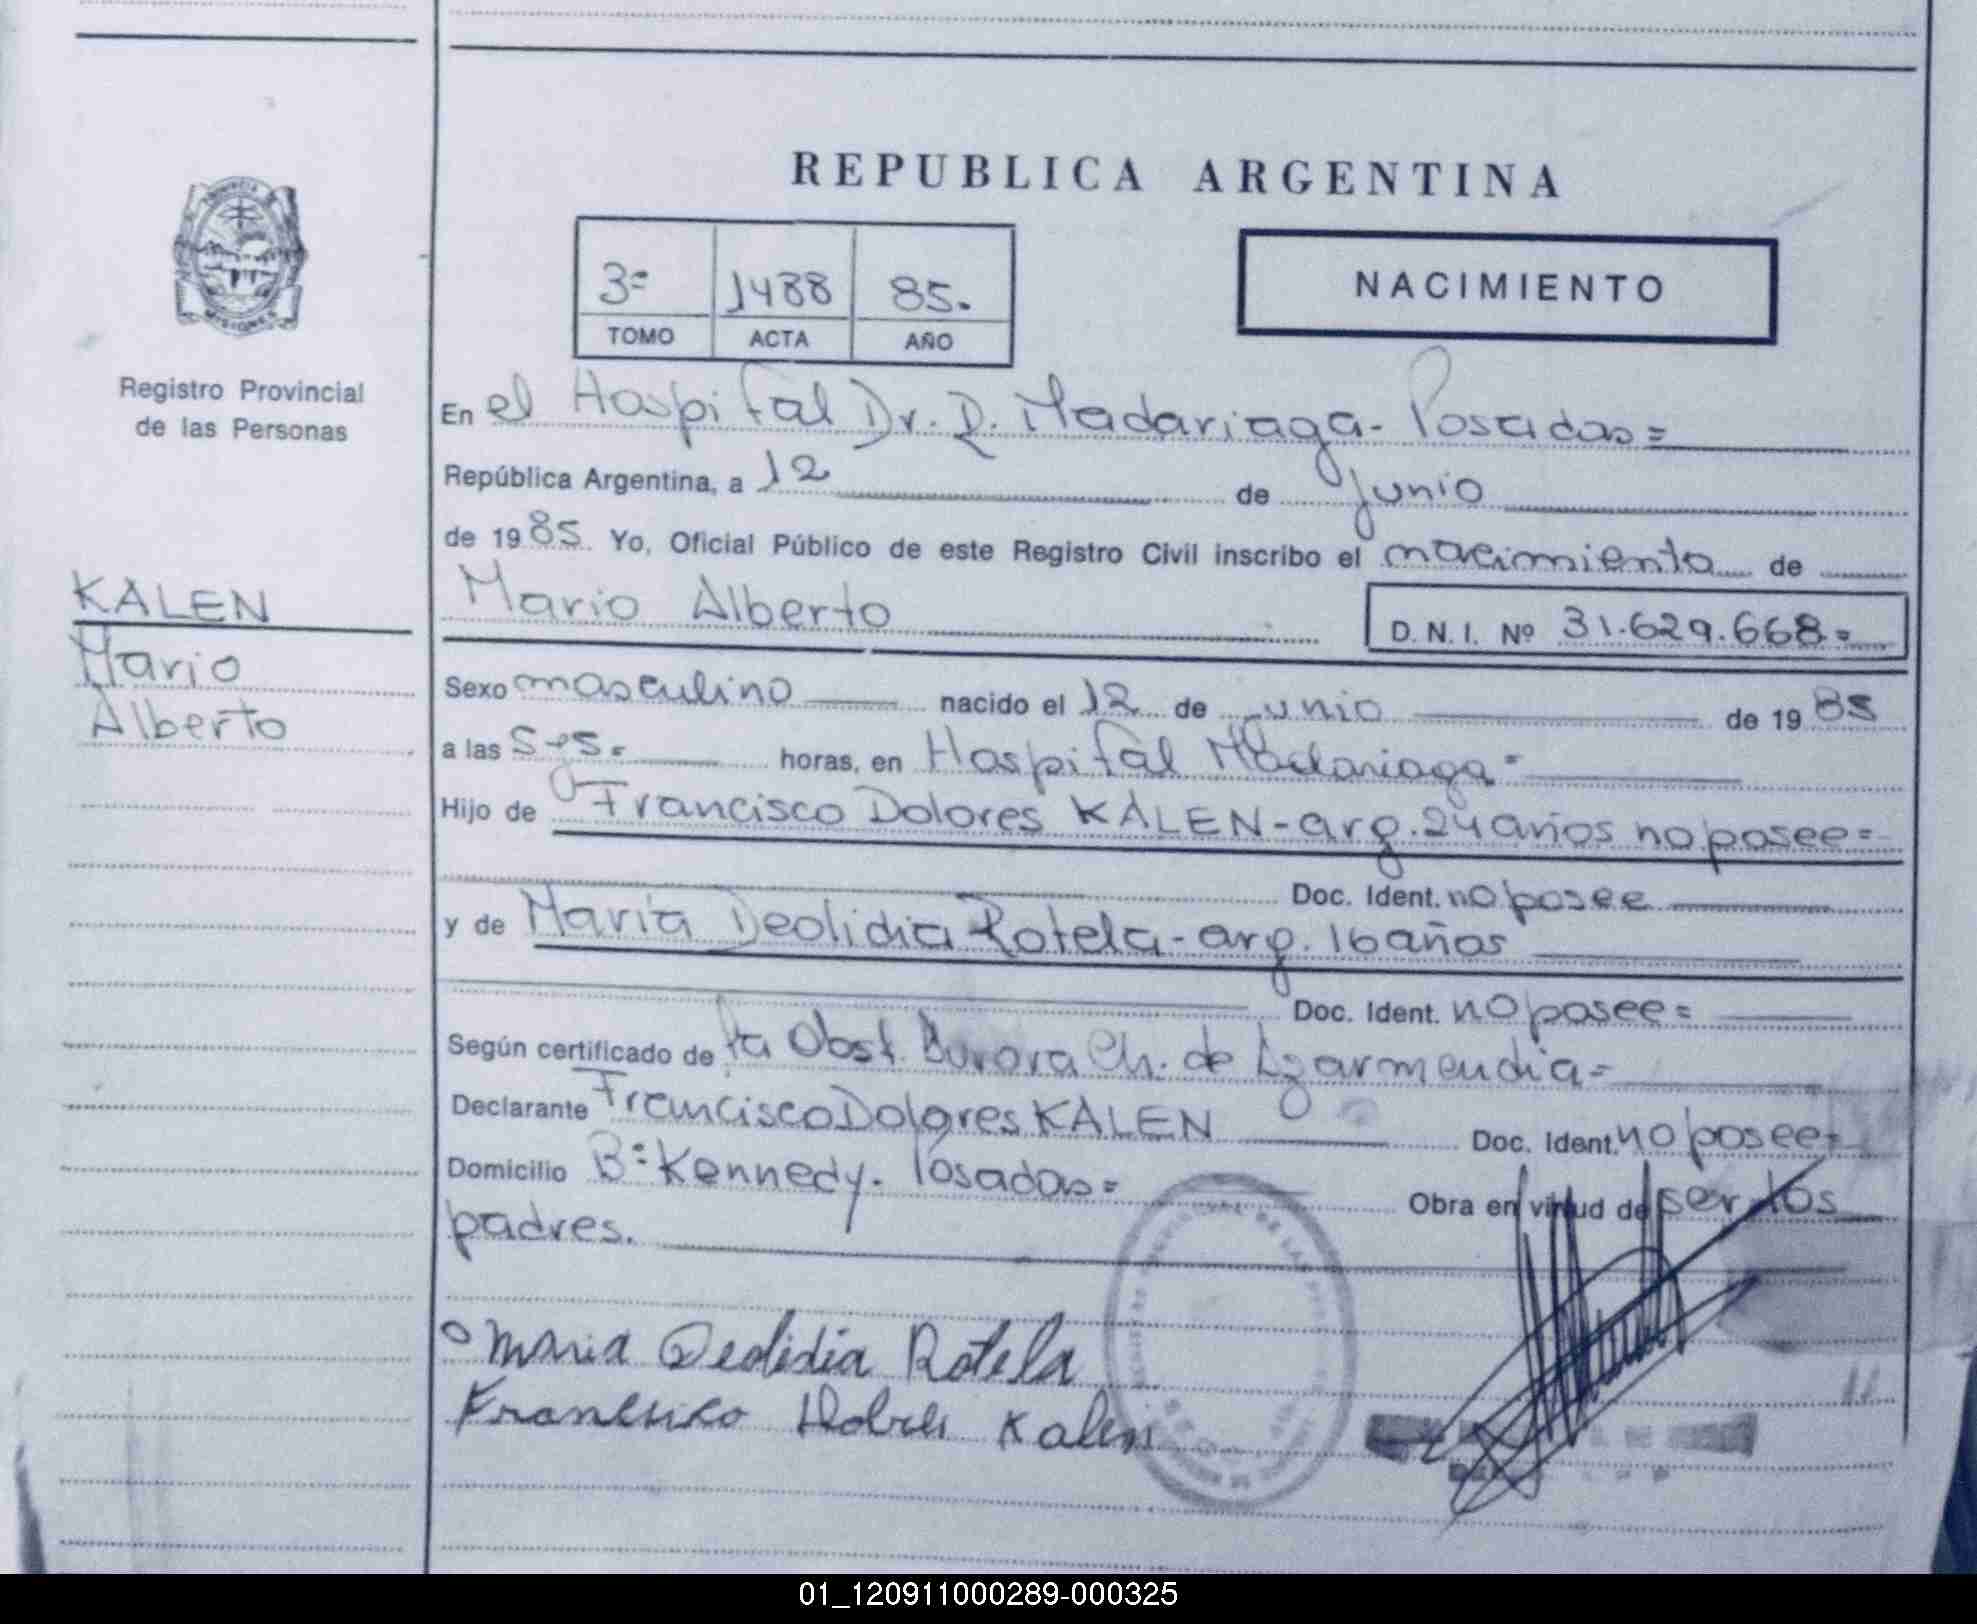 REPUBLICA ARGENTINA
3º 1488 85.
TOMO ACTA AÑO
NACIMIENTO
PROVINCIA
MISIONES
Registro Provincial
de las Personas
KALEN
Mario
Alberto
En el Hospital Dr. R. Madariaga - Posadas =
República Argentina, a 12 de junio
de 1985. Yo, Oficial Público de este Registro Civil inscribo el nacimiento de
Mario Alberto D.N.I. Nº 31.629.668 =
Sexo masculino nacido el 12 de junio de 1985
a las horas, en Hospital Madariaga =
Hijo de Francisco Dolores KALEN - arg. 24 años no posee =
Doc. Ident. no posee
y de María Deolidia Rotela - arg. 16 años
Doc. Ident. no posee =
Según certificado de la Obst. Aurora Ch. de =
Declarante Francisco Dolores KALEN Doc. Ident. no posee =
Domicilio Bº Kennedy. Posadas = Obra en virtud de ser los
padres.
Maria Deolidia Rotela
Francisco Kalen
01_120911000289-000325